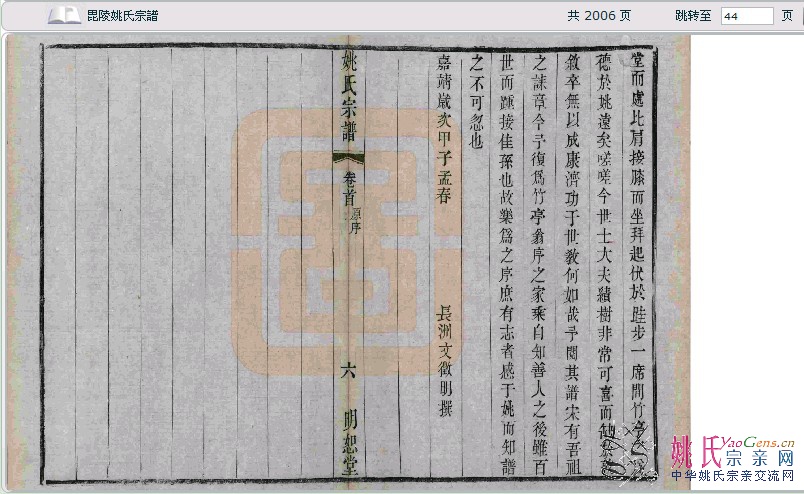 毘陵姚氏宗譜
共 2006 页
跳转至 44 页
堂而處比肩接膝而坐拜起伏於跬步一席間竹亭
德於姚遠矣嗟嗟今世士大夫績樹非常可喜而
敘卒無以成康濟功于世教何如哉予閱其譜宋有吾祖
之誄章今予復爲竹亭翁序之家乘自知善人之後雖百
世而踵接佳孫也故樂爲之序庶有志者感于姚而知譜
之不可忽也
嘉靖歲次甲子孟春
長洲文徵明撰
姚氏宗譜
卷首
原序
六
明恕堂
姚氏YaoGens.cn
宗亲网
中华姚氏宗亲交流网